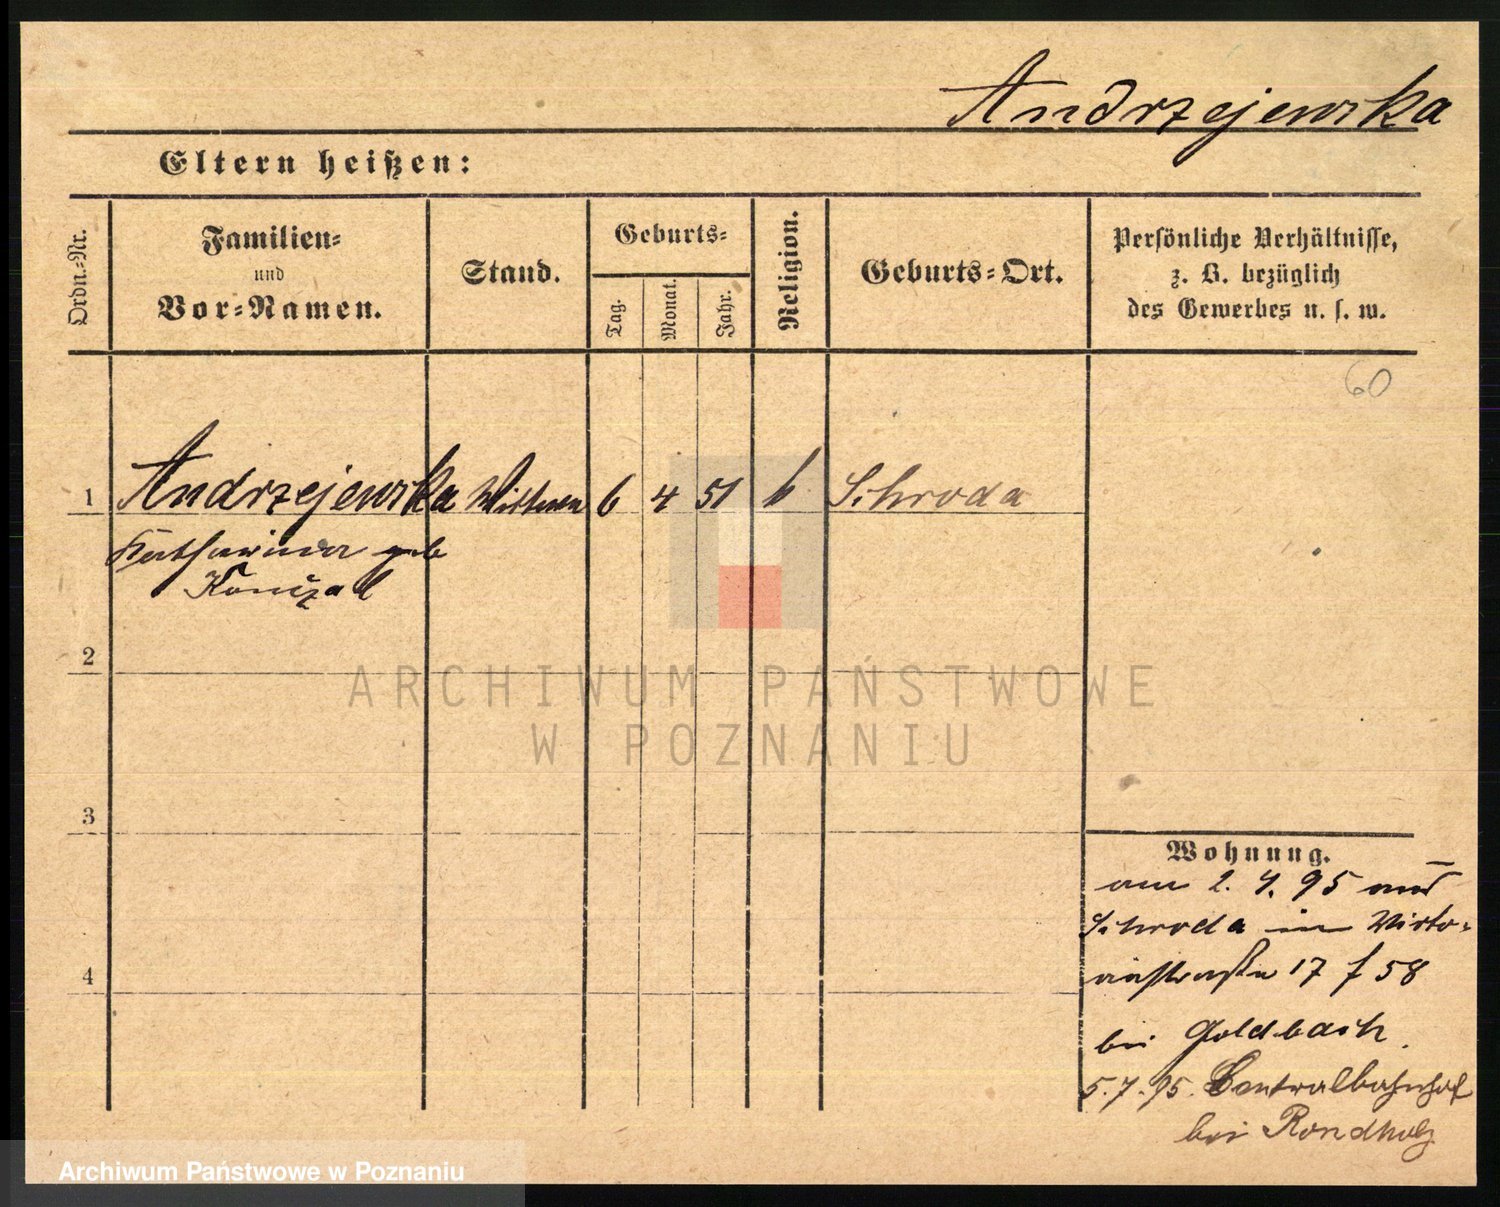 Andrzejewska
Eltern heißen:
Ordn.=Nr.
Familien=
und
Vor=Namen.
Stand.
Geburts=
Tag.
Monat.
Jahr.
Religion.
Geburts=Ort.
Persönliche Verhältnisse,
z. B. bezüglich
des Gewerbes u. s. w.
60
1 Andrzejewska Wittwe 6 4 51 k Schroda
Katharina geb
2
3
4
Wohnung.
am 2. 4. 95 aus
Schroda in Victo-
riastraße 17 f 58
bei Goldbach.
5.7.95. Centralbahnhof
bei Rondholz
ARCHIWUM PAŃSTWOWE
W POZNANIU
Archiwum Państwowe w Poznaniu